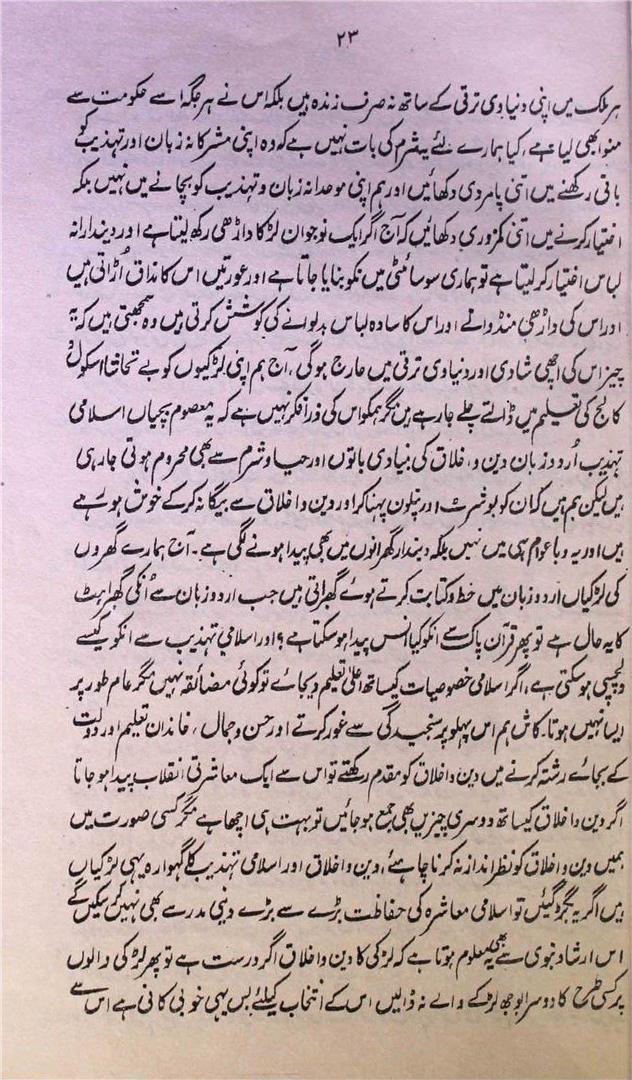 ۲۳
ہر ملک میں اپنی دنیاوی ترقی کے ساتھ نہ صرف زندہ ہیں بلکہ اس نے ہر جگہ اسے حکومت سے
منوا بھی لیا ہے، کیا ہمارے لئے یہ شرم کی بات نہیں ہے کہ وہ اپنی مشرکانہ زبان اور تہذیب کو
باقی رکھنے میں اتنی پامردی دکھائیں اور ہم اپنی موحدانہ زبان و تہذیب کو بچانے میں نہیں بلکہ
اختیار کرنے میں اتنی کمزوری دکھائیں کہ آج اگر ایک نوجوان لڑکا داڑھی رکھ لیتا ہے اور دیندارانہ
لباس اختیار کر لیتا ہے تو ہماری سوسائٹی میں نکو بنایا جاتا ہے اور عورتیں اس کا مذاق اُڑاتی ہیں
اور اس کی داڑھی منڈوانے اور اس کا سادہ لباس بدلوانے کی کوشش کرتی ہیں وہ سمجھتی ہیں کہ یہ
چیز اس کی اچھی شادی اور دنیاوی ترقی میں حارج ہوگی، آج ہم اپنی لڑکیوں کو بے تحاشا اسکول
کالج کی تعلیم میں ڈالتے چلے جا رہے ہیں مگر ہمکو اس کی ذرا فکر نہیں ہے کہ یہ معصوم بچیاں اسلامی
تہذیب اُردو زبان دین و اخلاق کی بنیادی باتوں اور حیا و شرم سے بھی محروم ہوتی جا رہی
ہیں لیکن ہم ہیں کہ ان کو بوشرٹ اور پتلون پہنا کر اور دین و اخلاق سے بیگانہ کر کے خوش ہو رہے
ہیں اور یہ وبا عوام ہی میں نہیں بلکہ دیندار گھرانوں میں بھی پیدا ہونے لگی ہے۔ آج ہمارے گھروں
کی لڑکیاں اردو زبان میں خط و کتابت کرتے ہوئے گھبراتی ہیں جب اردو زبان سے اُنکی گھبراہٹ
کا یہ حال ہے تو پھر قرآن پاک سے انکو کیا اُنس پیدا ہو سکتا ہے؟ اور اسلامی تہذیب سے انکو کیسے
دلچسپی ہو سکتی ہے، اگر اسلامی خصوصیات کیساتھ اعلیٰ تعلیم دیجائے تو کوئی مضائقہ نہیں مگر عام طور پر
ایسا نہیں ہوتا۔ کاش ہم اس پہلو پر سنجیدگی سے غور کرتے اور حسن و جمال، خاندان تعلیم اور دولت
کے بجائے رشتہ کرنے میں دین و اخلاق کو مقدم رکھتے تو اس سے ایک معاشرتی انقلاب پیدا ہو جاتا
اگر دین و اخلاق کیساتھ دوسری چیزیں بھی جمع ہو جائیں تو بہت ہی اچھا ہے مگر کسی صورت میں
ہمیں دین و اخلاق کو نظر انداز نہ کرنا چاہئے، دین و اخلاق اور اسلامی تہذیب کا گہوارہ یہی لڑکیاں
ہیں اگر یہ بگڑ گئیں تو اسلامی معاشرہ کی حفاظت بڑے سے بڑے دینی مدرسے بھی نہیں کر سکیں گے
اس ارشاد نبوی سے بھی یہ معلوم ہوتا ہے کہ لڑکی کا دین و اخلاق اگر درست ہے تو پھر لڑکی والوں
پر کسی طرح کا دوسرا بوجھ لڑکے والے نہ ڈالیں اس کے انتخاب کیلئے بس یہی خوبی کافی ہے اس سے